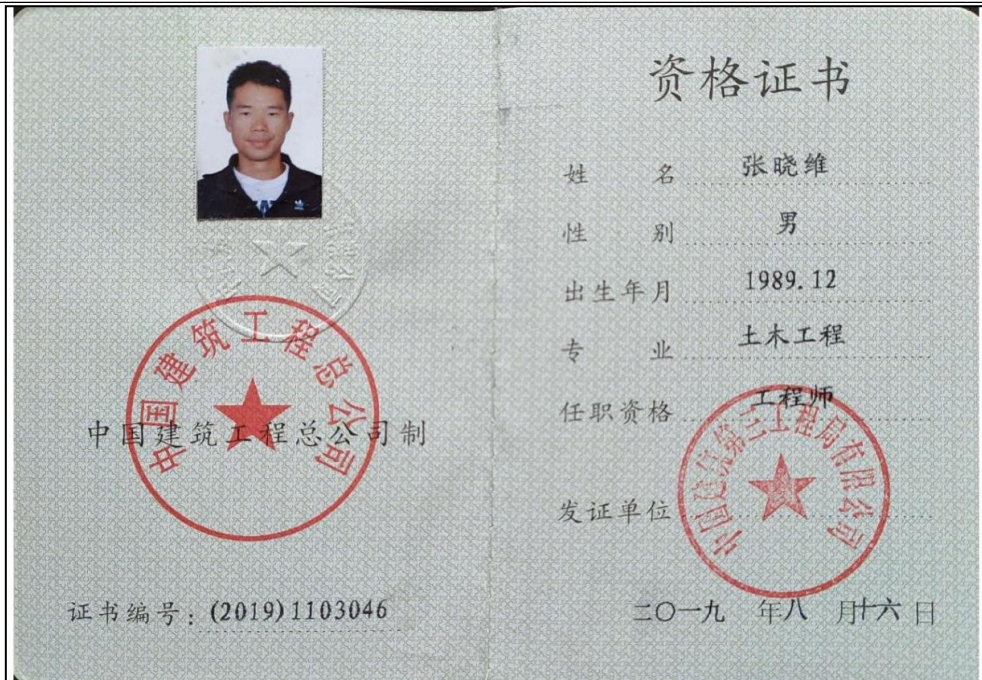 中国建筑工程总公司
中国建筑工程总公司制
证书编号：(2019)1103046
资格证书
姓 名 张晓维
性 别 男
出生年月 1989.12
专 业 土木工程
任职资格 工程师
发证单位
中国建筑第三工程局有限公司
二〇一九 年八 月十六 日